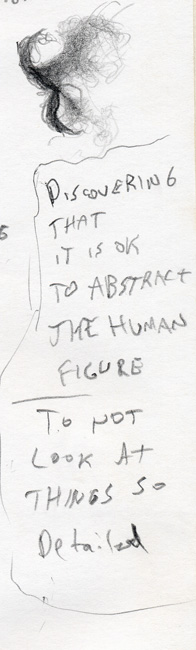 DISCOVERING
THAT
IT IS OK
TO ABSTRACT
THE HUMAN
FIGURE
TO NOT
LOOK AT
THINGS SO
Detailed